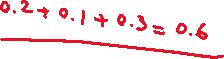 0.2 + 0.1 + 0.3 = 0.6